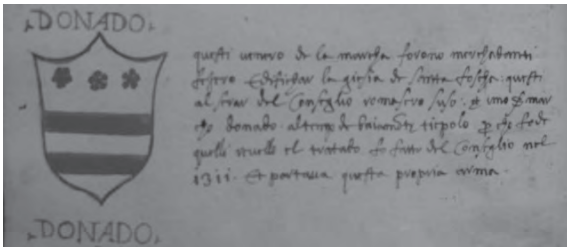 DONADO
questi venero de la marcha forono merchadanti
fostro Edifichar la giesia de santa foscha: questi
al serar del Conseglio romasero suso. Et uno mar
cho donado. al tempo de baiamonte tiepolo
quello revello el tratado fo fatto del Conseglio nel
1311. Et portava questa propria arma.
DONADO.